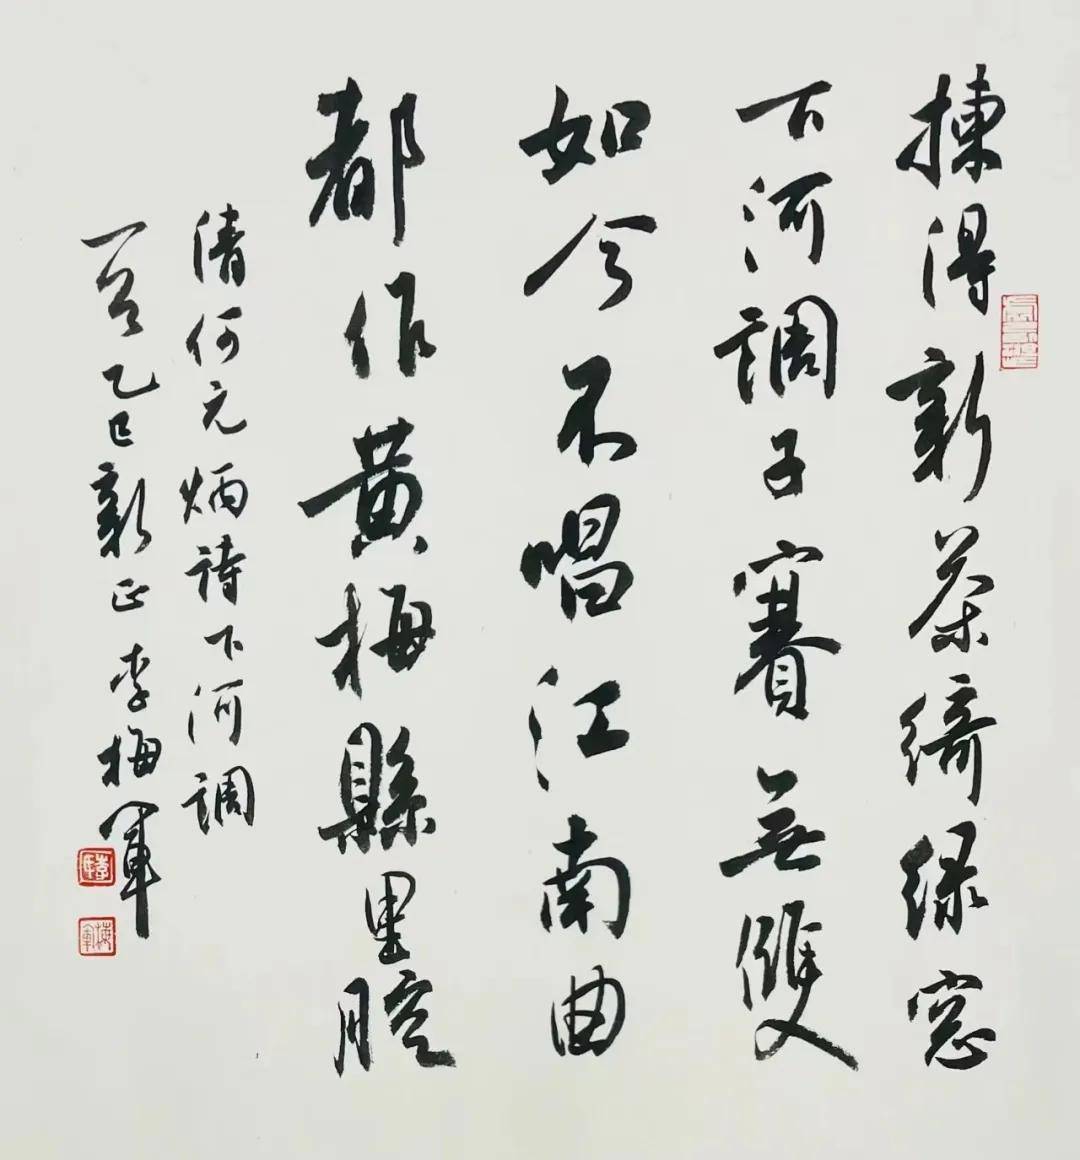 揀得新茶綺绿窓
下河調子賽無雙
如今不唱江南曲
都作黄梅縣里腔
清何元炳詩下河調
一首乙巳新正李梅軍